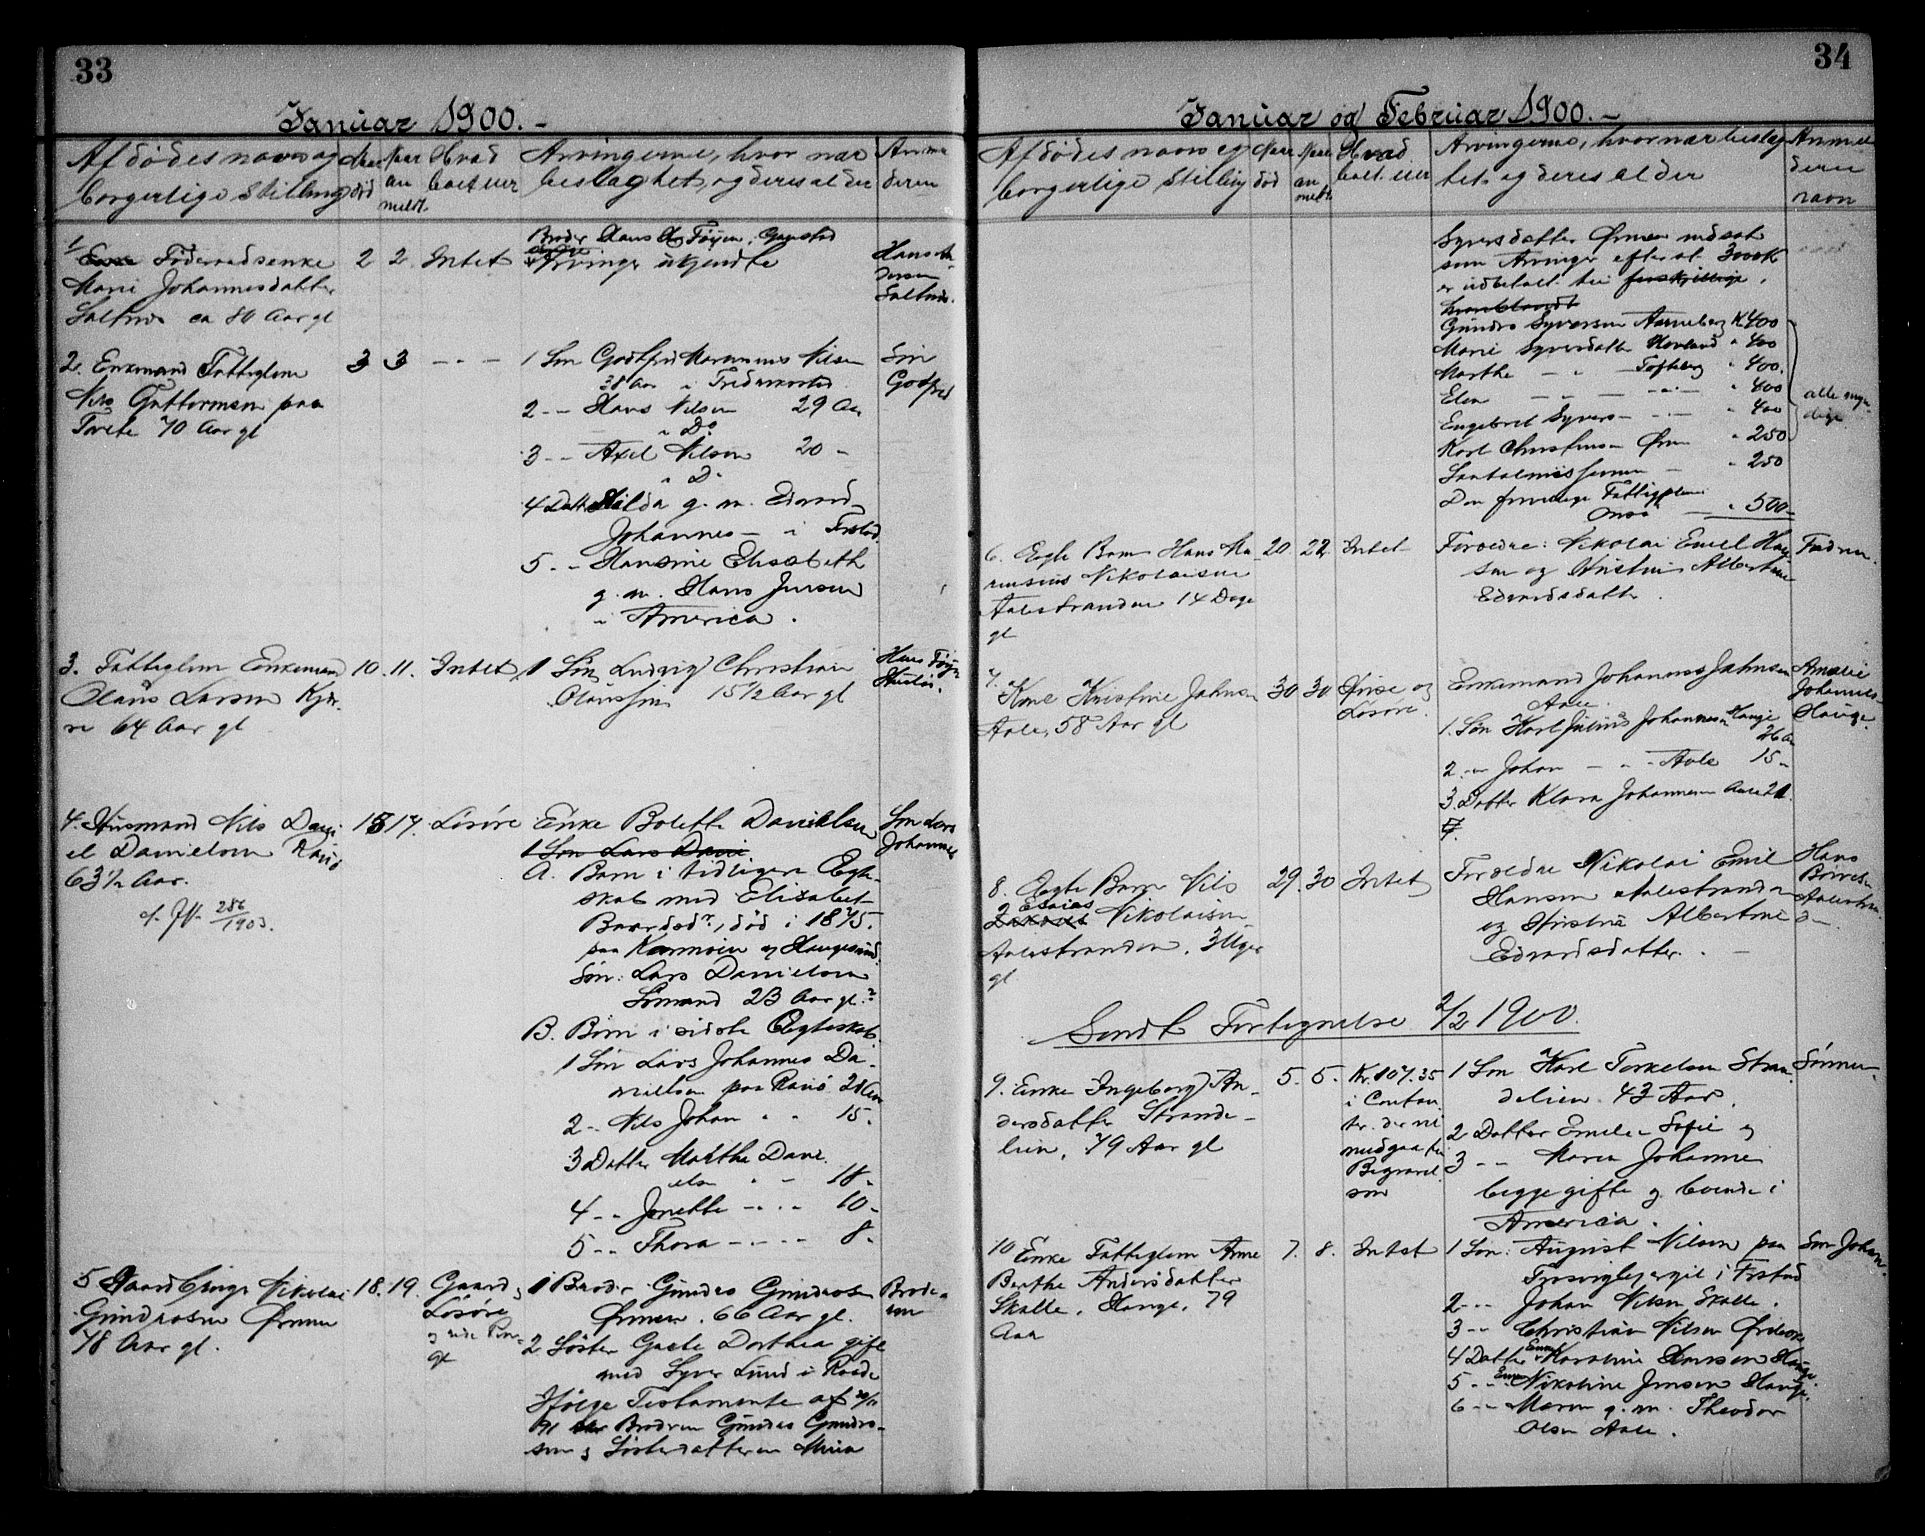 33
Januar 1900. -
Afdødes navn og borgerlige Stilling
Naar død
Naar anmeldt
Hvad boet eier
Arvingerne, hvor nær beslægtet, og deres alder
Anmelderen
1 Føderaadsenke
Marie Johannesdatter
Saltnes ca 80 Aar gl
2
2
Intet
Broder Hans Føyen, Onsø
Arvinger ukjendte
Saltnes.
2. Enkemand Fattiglem
Nils Guttormsen paa
Tvete 70 Aar gl
3
3
- - -
1 Søn Godtfred Marennius Nilsen
38 Aar i Fredrikstad
2 - - Hans Nilsen 29 Aar
" Do
3 - - Axel Nilsen 20 -
" D
4 Datt Hilda g. m. Edvard
Johannes - i Frstad.
5 - - Hansine Elisabeth
g. m. Hans Jensen
i America.
Søn
Godfred
3. Fattiglem Enkemand
Olaus Larsen
64 Aar gl
10.
11.
Intet
1 Søn Ludvig Christian
Olaussen 15 1/2 Aar gl
Hans Føyn
4. Husmand Nils Dani-
el Danielsen Rauø
63 1/2 Aar.
286/1903.
15
17.
Løsøre
Enke Bolette Danielsen
1 Søn Lars Dani
A. Barn i tidligere Ægte-
skab med Elisabet
død i 1875.
paa Karmøien og Haugesund.
Søn: Lars Danielsen
Sømand 23 Aar gl.?
B. Børn i sidste Ægteskab.
1 Søn Lars Johannes Da-
nielsen paa Rauø 21 Aar
2 - Nils Johan " " 15.
3 Datter Marthe Dani
elsen " - 18 -
4 - - Jonette - . . 10 -
5 - - Thora - . - . 8 -
Søn Lars
Johannes
5 Gaardbruger Nikolai
Gundersen Ørmen
78 Aar gl.
18.
19.
Gaard,
Løsøre
1 Broder Gunder Gundersen
Ørmen. 66 Aar gl.
2 Søster Grete Dorthea gift
med Syver Lund i Raade
Ifølge Testamente af
Brodren Gunder Gunder-
sen og Søsterdatteren
Broderen
34
Januar og Februar 1900. -
Afdødes navn og borgerlige Stilling
Naar død
Naar anmeldt
Hvad boet eier
Arvingerne, hvor nær beslægtet og deres alder
Anmelderens navn
Syversdatter Ørmen indsat
som Arvinger efterat
er udbetalt til forskjellige,
hvoriblandt
Gunder Syversen K. 400
Marie Syversdatter Hovland " 400
Marthe - " - Tofteberg " 400.
Elen - " - - " - " 400
Engebret Syvers - - " - " 400
Karl Christensen Ørmen " 250
Santalmissionen - " 250
Den frivillige Fattigpleie
Onsø - " 500 -
alle myn-
dige
6. Ægte Barn Hans Ma-
rensius Nikolaisen
Aalestranden 14 Dage
gl
20.
22.
Intet
Forældre: Nikolai Emil Han-
sen og Kristine Albertine
Edvardsdatter.
Faderen.
7. Kone Kristine Jahnsen
Aale, 58 Aar gl
30
30
Huse og
Løsøre.
Enkemand Johannes Jahnsen
Aale.
1. Søn Karl Julius Johannesen Hauge
26 Aar
2. - - Johan - " - Aale 15 -
3. Datter Klara Johannesen Aale 21.
Amalie
Johannes-
Hauge.
8. Ægte Barn Nils
Esaias Nikolaisen
Aalestranden. 3 Uger
gl
29.
30
Intet
Forældre Nikolai Emil
Hansen Aalestranden
og Kristine Albertine
Edvardsdatter. -
Hans
Sendt Fortegnelse 2/2 1900
9. Enke Ingeborg An-
dersdatter Strande-
lien, 79 Aar gl
5.
5.
Kr. 107.35
i Contan-
ter. der vil
medgaa til
Begravel-
sen
1 Søn Karl Torkelsen Stran-
delien. 43 Aar.
2 Datter Emelie Sofie og
3 - - Maren Johanne
begge gifte og boende i
America.
Sønnen.
10 Enke Fattiglem Anne
Berthe Andersdatter
Skalle, Hauge, 79
Aar
7.
8.
Intet
1 Søn: August Nilsen paa
Trosvigbjerget i Frstad
2 - - Johan Nilsen Skalle.
3 - - Christian Nilsen
4 Datter Enke Karoline Hansen Hauge.
5 - - Enke Nikoline Jensen Hauge.
6 - - Maren g. m. Theodor
Olsen Aale.
Søn Johan.